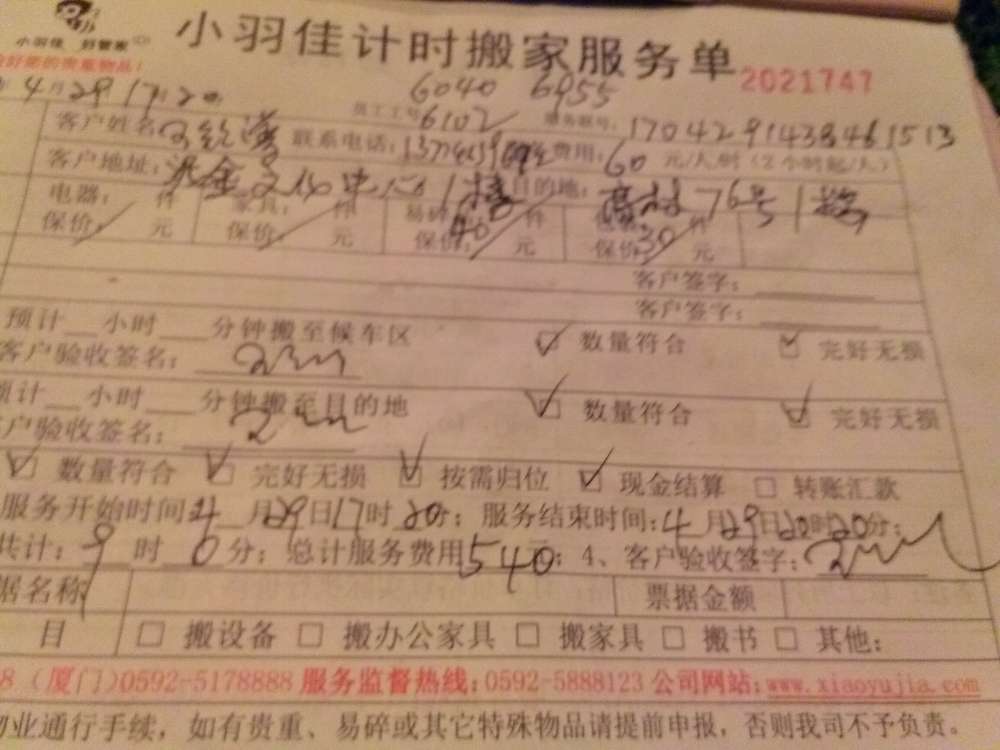 小羽佳 好管家
小羽佳计时搬家服务单 2021747
好您的贵重物品!
4月29 17时20 6040 6955
员工工号 6102 服务账号: 1704291438461513
客户姓名 联系电话: 费用: 60 元/人/时(2小时起/人)
客户地址: 文化中心1楼 目的地: 76号1楼
电器: 件 家具: 件 易碎 件 件
保价: 元 保价: 元 保价: 40 元 保价: 30 元
客户签字:
客户签字:
预计__小时__分钟搬至候车区 ☑ 数量符合 ☑ 完好无损
客户验收签名:
预计__小时__分钟搬至目的地 ☑ 数量符合 ☑ 完好无损
户验收签名:
☑ 数量符合 ☑ 完好无损 ☑ 按需归位 ☑ 现金结算 □ 转账汇款
服务开始时间: 4月29日17时20分; 服务结束时间: 4月29日20时20分;
共计: 9时0分; 总计服务费用540元; 4、客户验收签字:
据名称 票据金额
目 □ 搬设备 □ 搬办公家具 □ 搬家具 □ 搬书 □ 其他:
8 (厦门)0592-5178888 服务监督热线:0592-5888123 公司网站:www.xiaoyujia.com
物业通行手续,如有贵重、易碎或其它特殊物品请提前申报,否则我司不予负责。